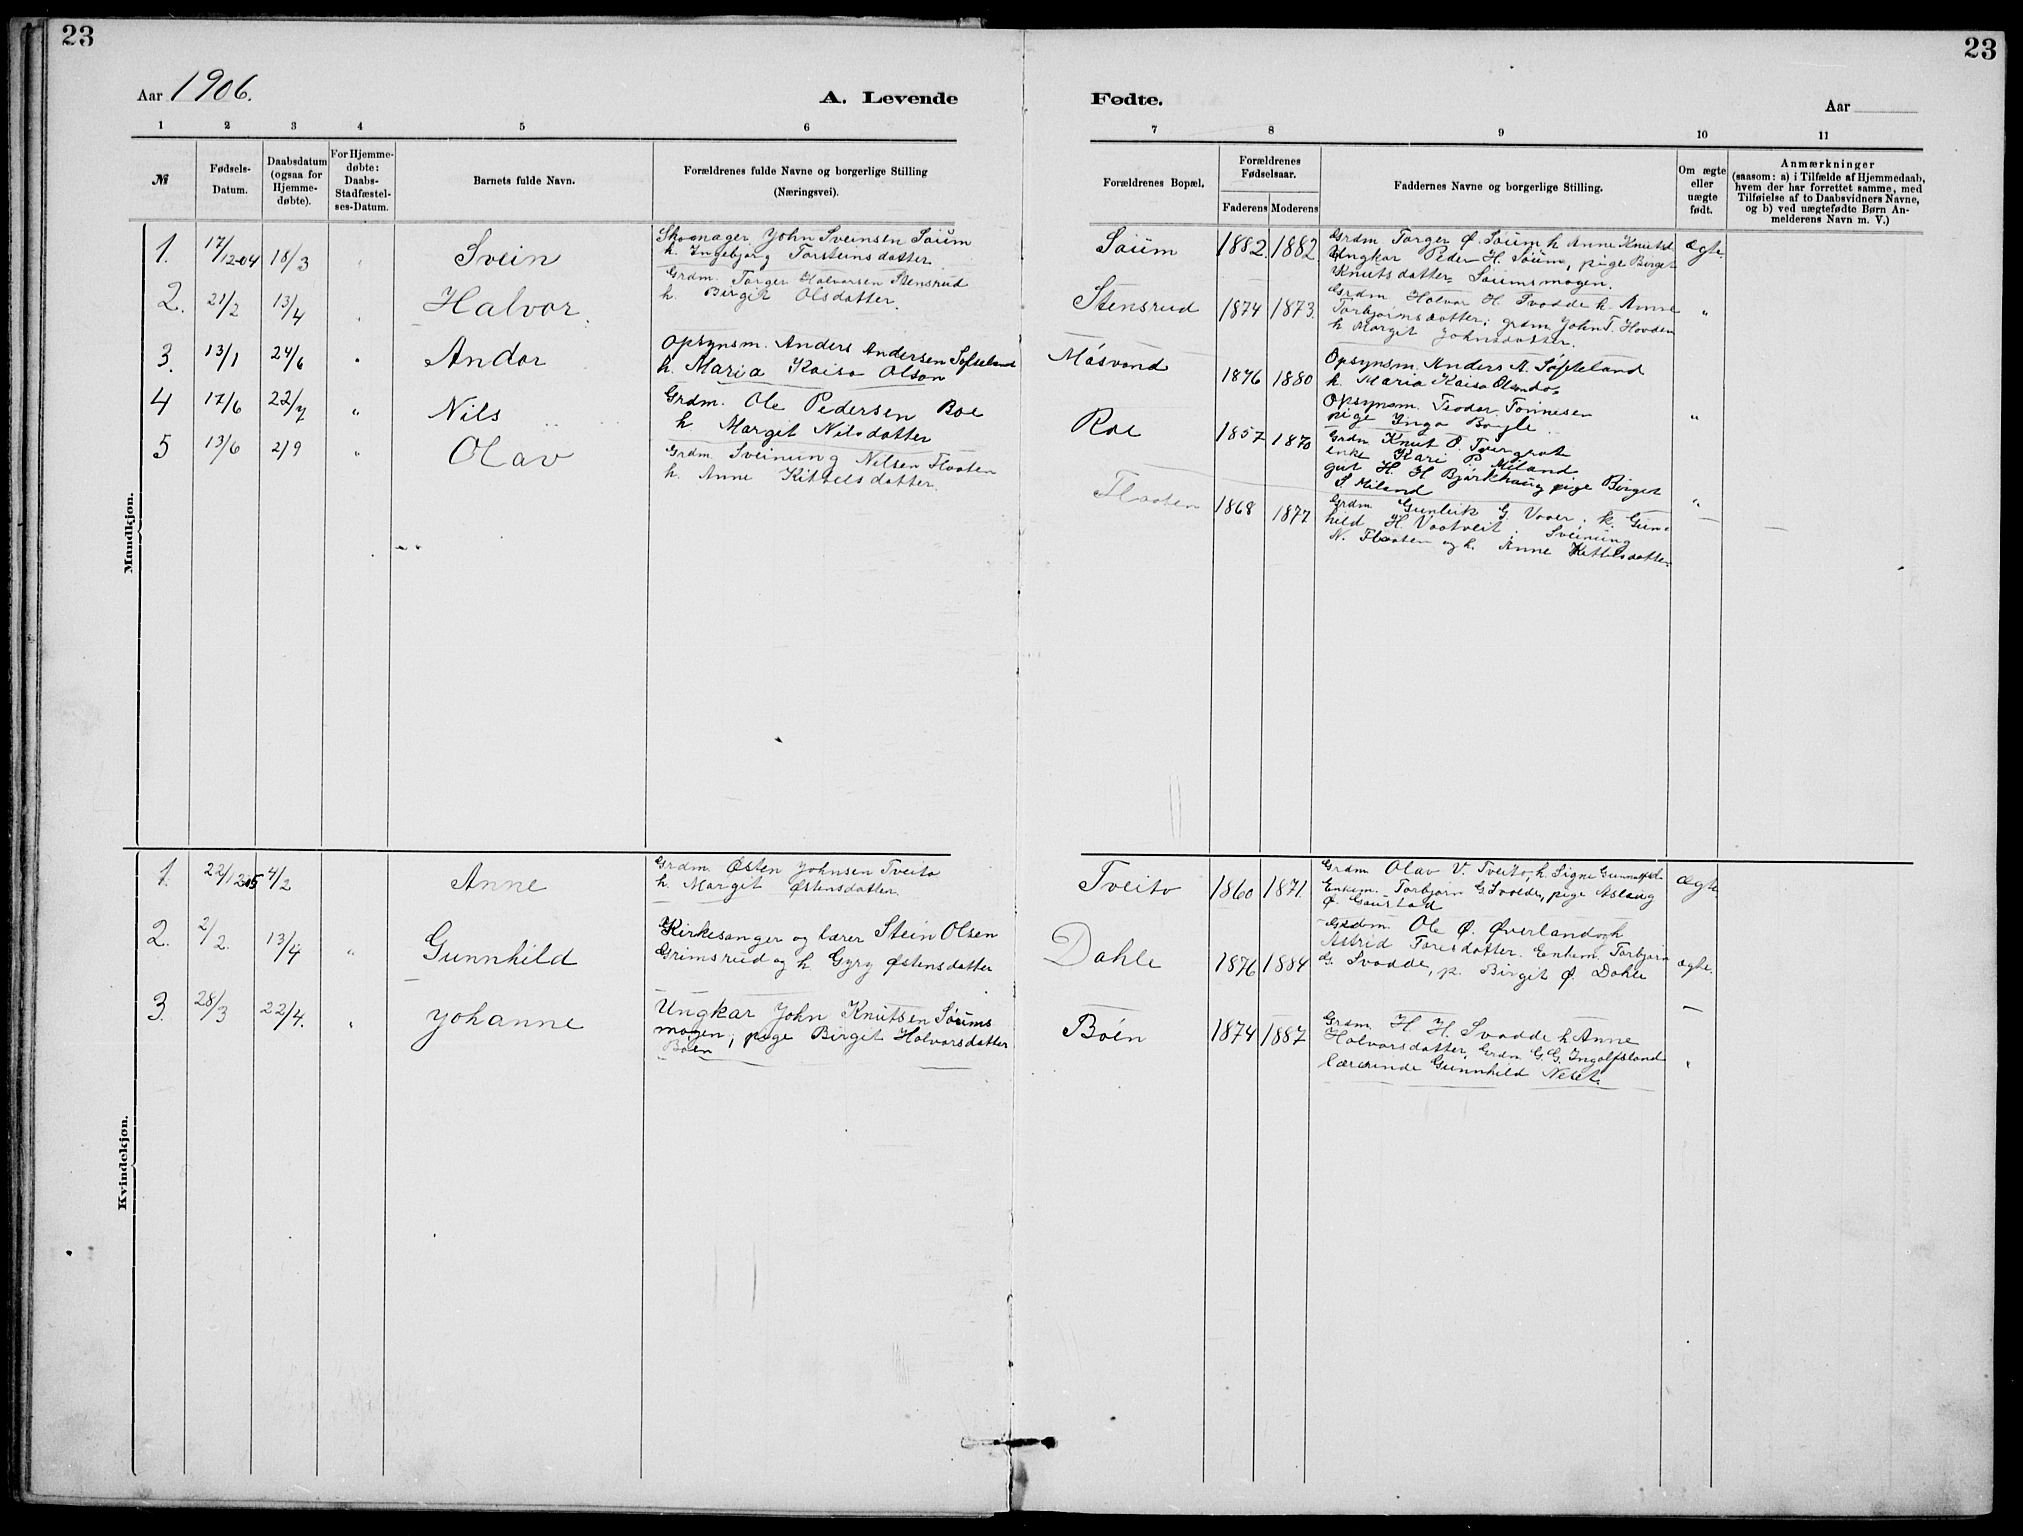 23
23
Aar 1906.
A. Levende
Fødte.
Aar
1 2 3 4 5 6
7 8 9 10 11
№
Fødsels-
Datum.
Daabsdatum
(ogsaa for
Hjemme-
døbte).
For Hjemme-
døbte:
Daabs-
Stadfæstel-
ses-Datum.
Barnets fulde Navn.
Forældrenes fulde Navne og borgerlige Stilling
(Næringsvei).
Forældrenes Bopæl.
Forældrenes
Fødselsaar.
Faderens Moderens
Faddernes Navne og borgerlige Stilling.
Om ægte
eller
uægte
født.
Anmærkninger
(saasom: a) i Tilfælde af Hjemmedaab,
hvem der har forrettet samme, med
Tilføielse af to Daabsvidners Navne,
og b) ved uægtefødte Børn An-
melderens Navn m. V.)
Mandkjøn.
1. 17/12 04 18/3 Svein
Skomager John Sveinsen Søum
h. Ingebjørg Torsteinsdatter
Søum 1882 1882
Grdm Torger Ø. Søum h Anne Knutsd
Ungkar Peder H. Søum, pige Birget
Knutsdatter Søumsmogen.
ægte
2. 21/2 13/4 Halvor
Grdm. Torger Halvorsen Stensrud
h. Birgit Olsdatter.
Stensrud 1874 1873.
Grdm Halvor H. Svadde h. Anne
Torbjørnsdatter; grdm. John T. Hovden
h Margit Johnsdatter.
"
3. 13/1 24/6 " Andor
Opsynsm. Anders Andersen Softeland
h. Maria Kaisa Olson
Møsvand 1876 1880
Opsynsm Anders A. Søfteland
h. Maria Kaisa
Opsynsm. Teodor Tønnesen
pige Inga
"
4 17/6 22/7 " Nils
Grdm. Ole Pedersen Boe
h Margit Nilsdatter
Roe 1857 1870
Grdm Knut O. Tvergrot
enke Kari P. Miland
gut H. H Bjørkhaug pige Birget
S. Miland
"
5 13/6 2/9 " Olav
Grdm Sveinung Nilsen Flaaten
h. Anne Kittelsdatter.
Flaaten 1868 1877
Grdm Gunleik G. Vaaer, k. Gun-
hild H. Vaatveit; Sveinung
N. Flaaten og h. Anne Kittilsdatter
Kvindekjøn.
1. 22/12 05 4/2 Anne
Grdm. Østen Johnsen Tveito
h. Margit Østensdatter.
Tveito 1860 1871.
Grdm Olav V. Tveito, h. Signe
Enkem. Torbjørn G. Svadde, pige Aslaug
Ø. Gaustad
ægte.
2. 2/2. 13/4 " Gunnhild
Kirkesanger og lærer Stein Olsen
Grimsrud og h Gyry Østensdatter
Dahle 1876 1884
Grdm. Ole Ø. Øverland og h
Astrid Toresdatter. Enkem. Torbjørn
G. Svadde, p. Birgit Ø. Dahle
ægte.
3. 28/3 22/4. " Johanne
Ungkar John Knutsen Søums
mogen, pige Birget Halvorsdatter
Bøen
Bøen 1874 1887
Grdm. H H. Svadde h Anne
Halvorsdatter, Grdm G. G. Ingolfsland
lærerinde Gunnhild
"